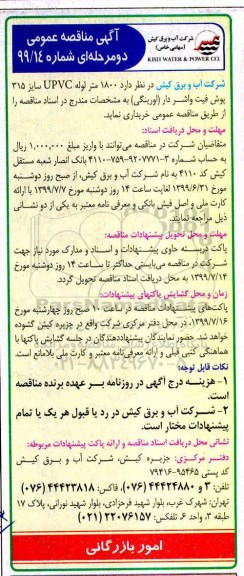 شرکت آب و برق کیش
(سهامی خاص)
KISH WATER & POWER CO.
آگهی مناقصه عمومی
دومرحله‌ای شماره ۹۹/۱۴
شرکت آب و برق کیش در نظر دارد ۱۸۰۰ متر لوله UPVC سایز ۳۱۵
پوش فیت واشر دار (اورینگی) به مشخصات مندرج در اسناد مناقصه را
از طریق مناقصه عمومی خریداری نماید.
مهلت و محل دریافت اسناد:
متقاضیان شرکت در مناقصه می‌توانند با واریز مبلغ ۱,۰۰۰,۰۰۰ ریال
به حساب شماره ۳-۹۲۰۷۷۷۱-۷۵۹-۴۱۱۰ بانک انصار شعبه مستقل
کیش کد ۴۱۱۰ به نام شرکت آب و برق کیش، از صبح روز دوشنبه
مورخ ۱۳۹۹/۶/۳۱ لغایت ساعت ۱۴ روز دوشنبه مورخ ۱۳۹۹/۷/۷ با ارائه
کارت ملی و اصل فیش بانکی و معرفی نامه معتبر به یکی از دو نشانی
ذیل مراجعه نمایند.
مهلت و محل تحویل پیشنهادات مناقصه:
پاکت دربسته حاوی پیشنهادات و اسناد و مدارک مورد نیاز جهت
شرکت در مناقصه می‌بایستی حداکثر تا ساعت ۱۴ روز دوشنبه مورخ
۱۳۹۹/۷/۱۴ به محل دریافت اسناد مناقصه تحویل گردد.
زمان و محل گشایش پاکتهای پیشنهادات:
پاکت‌های پیشنهادات مناقصه در ساعت ۱۰ صبح روز چهارشنبه مورخ
۱۳۹۹/۷/۱۶ در محل دفتر مرکزی شرکت واقع در جزیره کیش گشوده
خواهد شد. حضور نمایندگان پیشنهاددهندگان در جلسه گشایش پاکتها با
هماهنگی کتبی قبلی و ارائه معرفی‌نامه معتبر و کارت ملی بلامانع است.
نکات قابل توجه:
۱- هزینه درج آگهی در روزنامه بر عهده برنده مناقصه
است.
۲- شرکت آب و برق کیش در رد یا قبول هر یک یا تمام
پیشنهادات مختار است.
نشانی محل دریافت اسناد مناقصه و ارائه پاکت پیشنهادات مربوطه:
دفتر مرکزی: جزیره کیش، شرکت آب و برق کیش
کد پستی ۹۵۴۶۵-۷۹۴۱۶
تلفن: ۳ و ۴۴۴۲۴۸۸۰ (۰۷۶)، فاکس: ۴۴۴۲۳۸۱۸ (۰۷۶)
تهران: شهرک غرب، بلوار شهید فرحزادی، بلوار شهید نورانی، پلاک ۱۷
طبقه ۳، واحد ۶، تلفکس: ۲۲۰۷۶۱۵۷ (۰۲۱)
امور بازرگانی